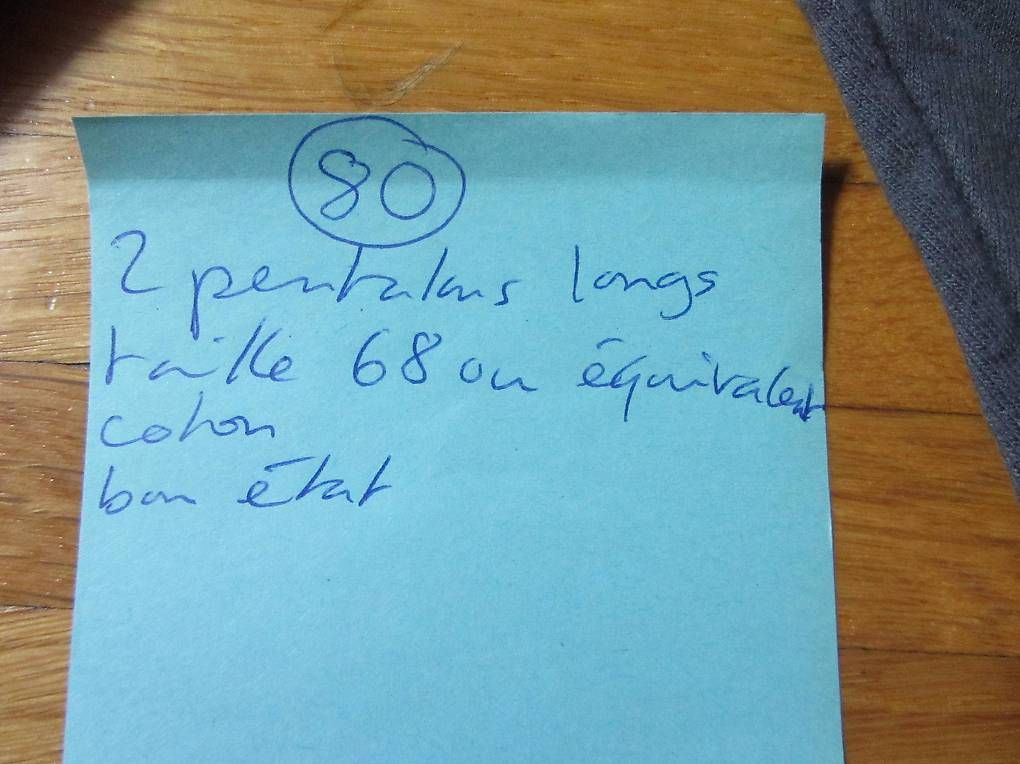 80
2 pentalons longs
taille 68 ou équivalent
coton
bon état